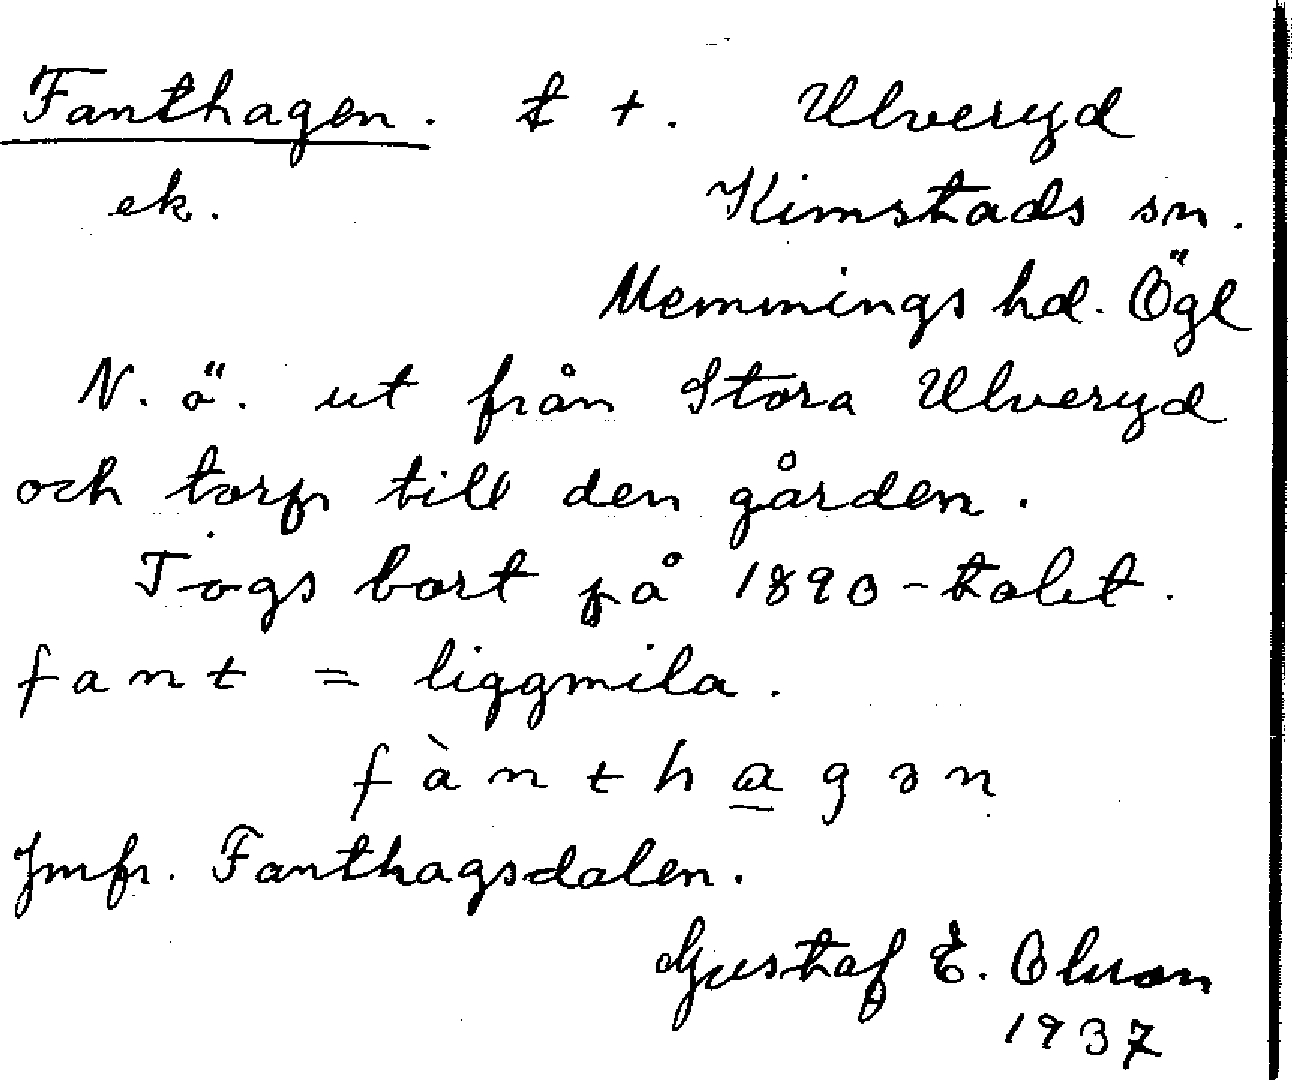 Fanthagen. t +. Ulveryd
ek. Kimstads sn.
Memmings hd. Ögl
N. ö. ut från Stora Ulveryd
och torp till den gården.
Togs bort på 1890-talet.
fant = liggmila.
fànthagən
Jmfr. Fanthagsdalen.
Gustaf E. Olsson
1937